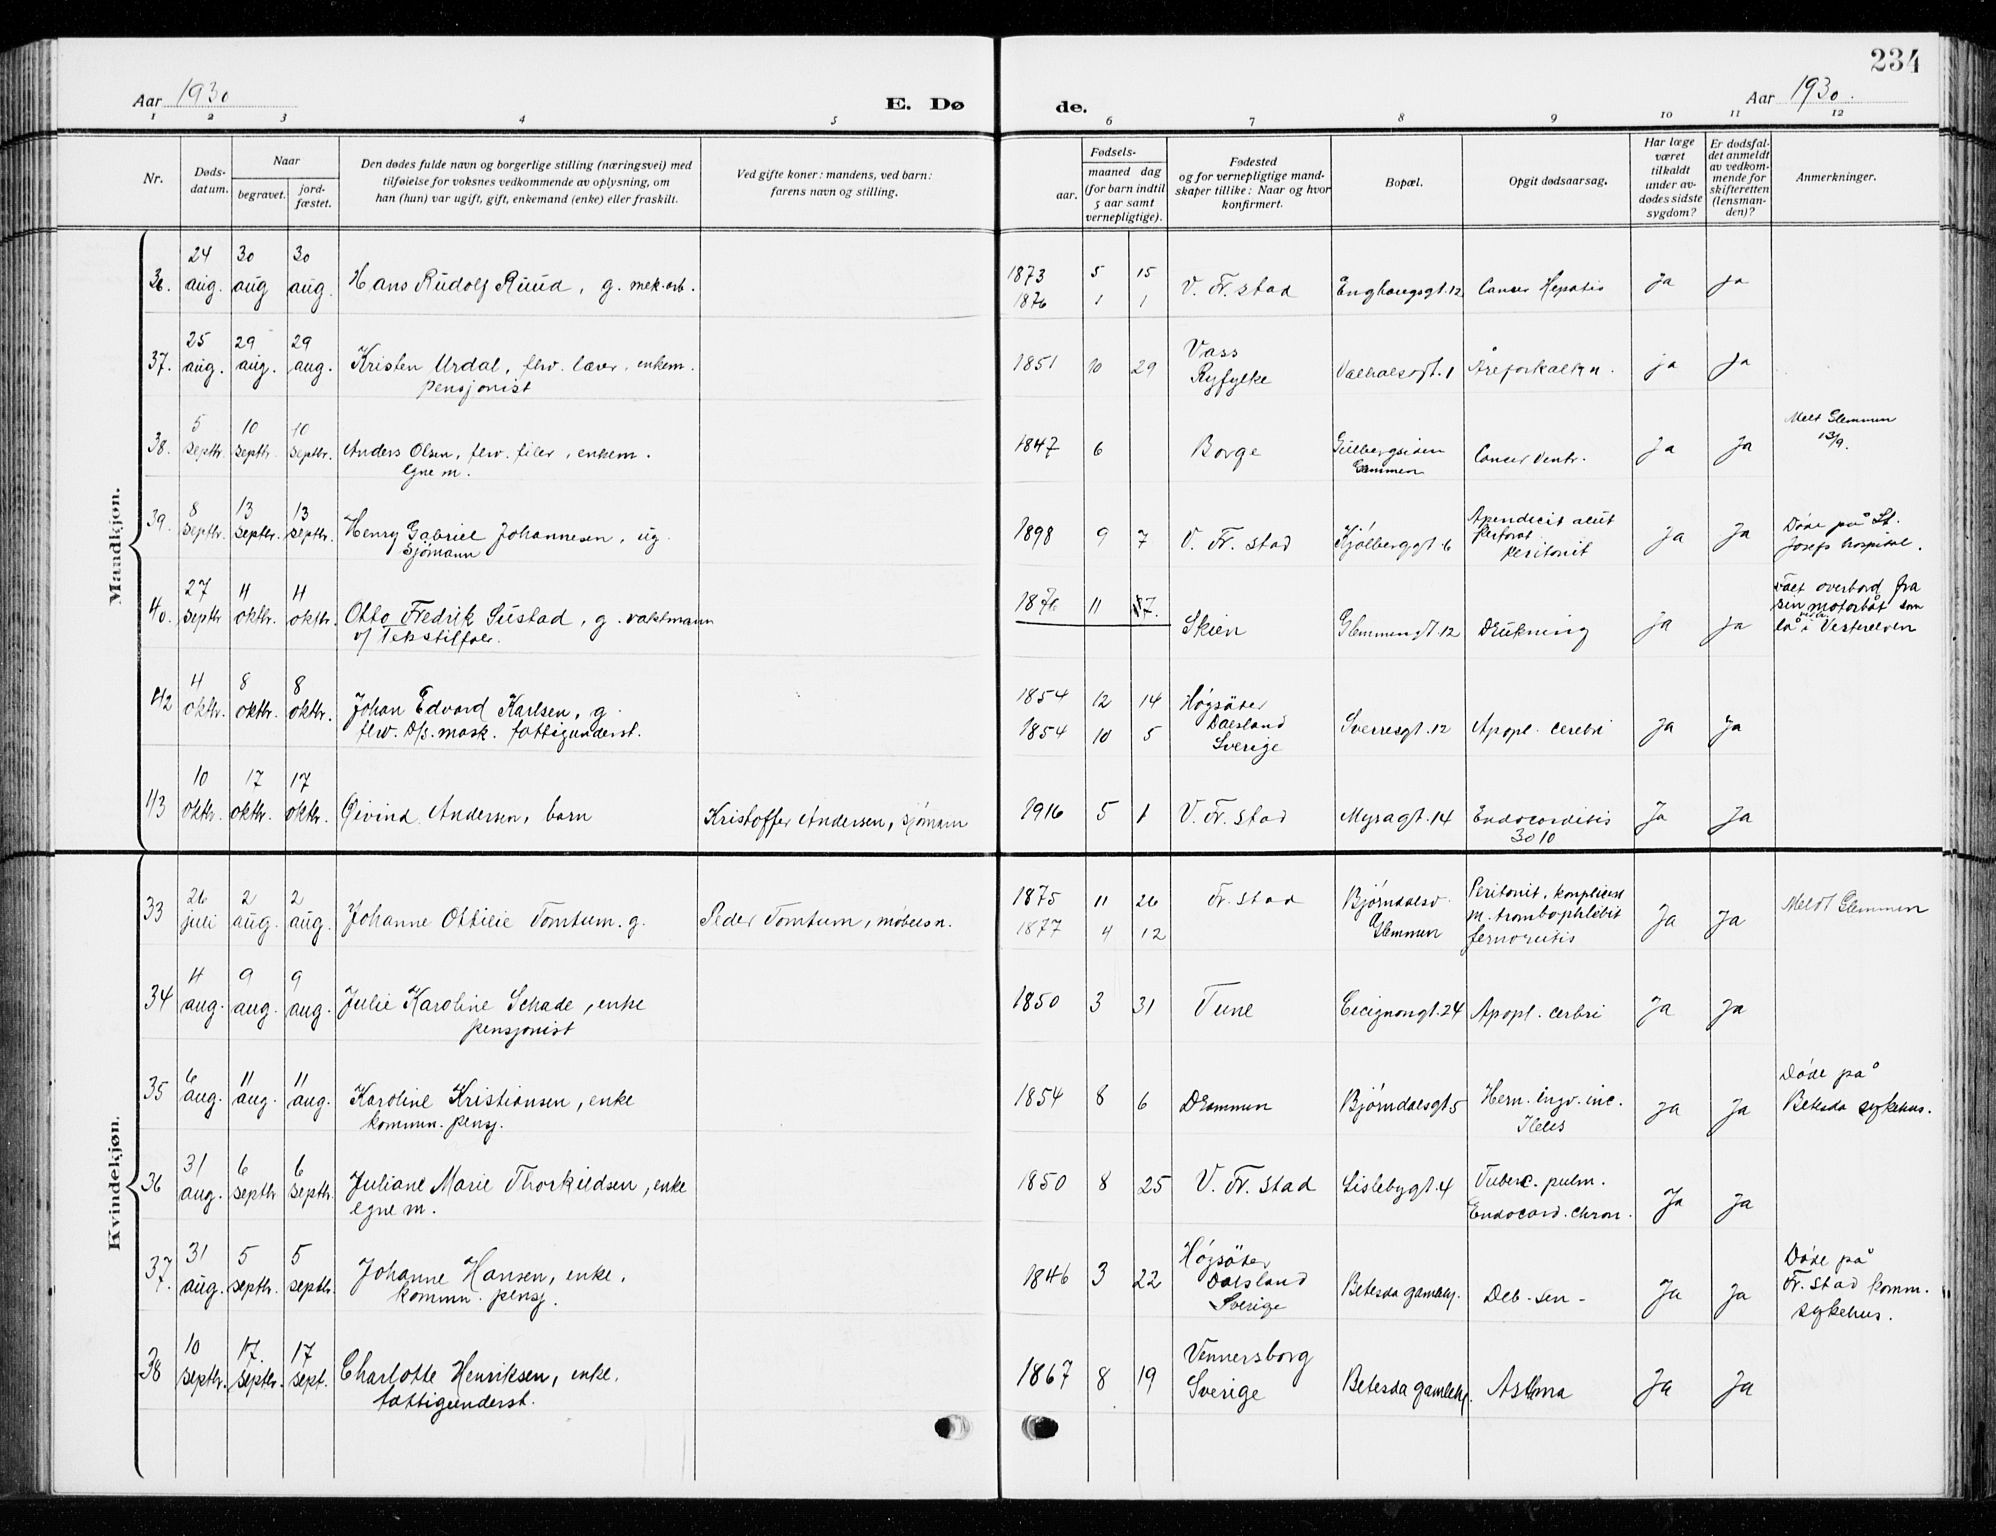 234
Aar 1930
E. Dø
de.
Aar 1930.
1 2 3 4 5 6 7 8 9 10 11 12
Nr.
Døds-
datum.
Naar
begravet.
jord-
fæstet.
Den dødes fulde navn og borgerlige stilling (næringsvei) med
tilføielse for voksnes vedkommende av oplysning, om
han (hun) var ugift, gift, enkemand (enke) eller fraskilt.
Ved gifte koner: mandens, ved barn:
farens navn og stilling.
Fødsels-
aar.
maaned dag
(for barn indtil
5 aar samt
vernepligtige).
Fødested
og for vernepligtige mand-
skaper tillike: Naar og hvor
konfirmert.
Bopæl.
Opgit dødsaarsag.
Har læge
været
tilkaldt
under av-
dødes sidste
sygdom?
Er dødsfal-
det anmeldt
av vedkom-
mende for
skifteretten
(lensman-
den)?
Anmerkninger.
Mandkjøn.
36. 24 aug. 30 aug 30 aug. Hans Rudolf Ruud, g. mek. arb. 1873 5 15 V. Fr. stad Enghaugsgt. 12 Cancer Hepatis ja ja
1876 1 1
37. 25 aug. 29 aug. 29 aug. Kristen Urdal, fhv. lærer, enkem. 1851 10 29 Vass Valhalsgt. 1 Åreforkalkn. ja ja
pensjonist Ryfylke
38. 5 septbr. 10 septbr. 10 septbr. Anders Olsen, fhv. filer, enkem. 1847 6 Borge Gullbergsiden Cancer Ventr. ja ja Meldt Glemmen
egne m. Glemmen 13/9.
39. 8 septbr. 13 septbr. 13 septbr. Henry Gabriel Johannesen, ug. 1898 9 7 V. Fr. stad Kjølberggt 6 Apendicit acut ja ja Døde på St.
sjømann perforat. Josefs hospital.
peritonit
40. 27 septbr 4 oktbr. 4 oktbr. Otto Fredrik Gustad, g. vaktmann 11 Skien Glemmengt. 12 Drukning ja ja overbord fra
v/ Tekstilfabr. sin motorbåt som
lå i Vesterelven
42 4 oktbr. 8 oktbr. 8 oktbr. Johan Edvard Karlsen, g. 1854 12 14 Høgsäter Sverresgt. 12 Apopl. cerebri ja ja
fhv. D/s. mask. fattigunderst. 1854 10 5 Dalsland
Sverige
43 10 oktbr. 17 oktbr. 17 oktbr. Øivind Andersen, barn Kristoffer Andersen, sjømann 1916 5 1 V. Fr. stad Myragt. 14 Endocarditis Ja Ja
3010
Kvindekjøn.
33 26 juli 2 aug. 2 aug. Johanne Ottilie Tomtum. g. Peder Tomtum, møbelsn. 1875 11 26 Fr. stad Bjørndalsv. Peritonit. komplicert Ja Ja Meldt Glemmen
1877 4 12 Glemmen m. trombophlebit
femoralis
34 4 aug. 9 aug. 9 aug. Julie Karoline Schade, enke 1850 3 31 Tune Cicignongt. 24 Apopl. cerbri Ja Ja
pensjonist
35 6 aug. 11 aug. 11 aug. Karoline Kristiansen, enke 1854 8 6 Drammen Bjørndalsgt 5 Hern. ingv. inc. ja Ja Døde på
kommun. pensj. Ileus Betesda sykehus.
36 31 aug. 6 septbr 6 septbr. Juliane Marie Thorkildsen, enke 1850 8 25 V. Fr. stad Lislebygt. 4 Tuberc. pulm. Ja Ja
egne m. Endocard. chron.
37. 31 aug. 5 septbr. 5 septbr. Johanne Hansen, enke. 1846 3 22 Høgsäter Betesda gamlehj. Deb. sen - Ja Ja Døde på
kommun. pensj. Dalsland Fr. stad komm.
Sverige sykehus.
38 10 septbr. 17. septbr. 17 sept. Charlotte Henriksen, enke. 1867 8 19 Vennersborg Betesda gamlehj. Astma Ja Ja
fattigunderst. Sverige